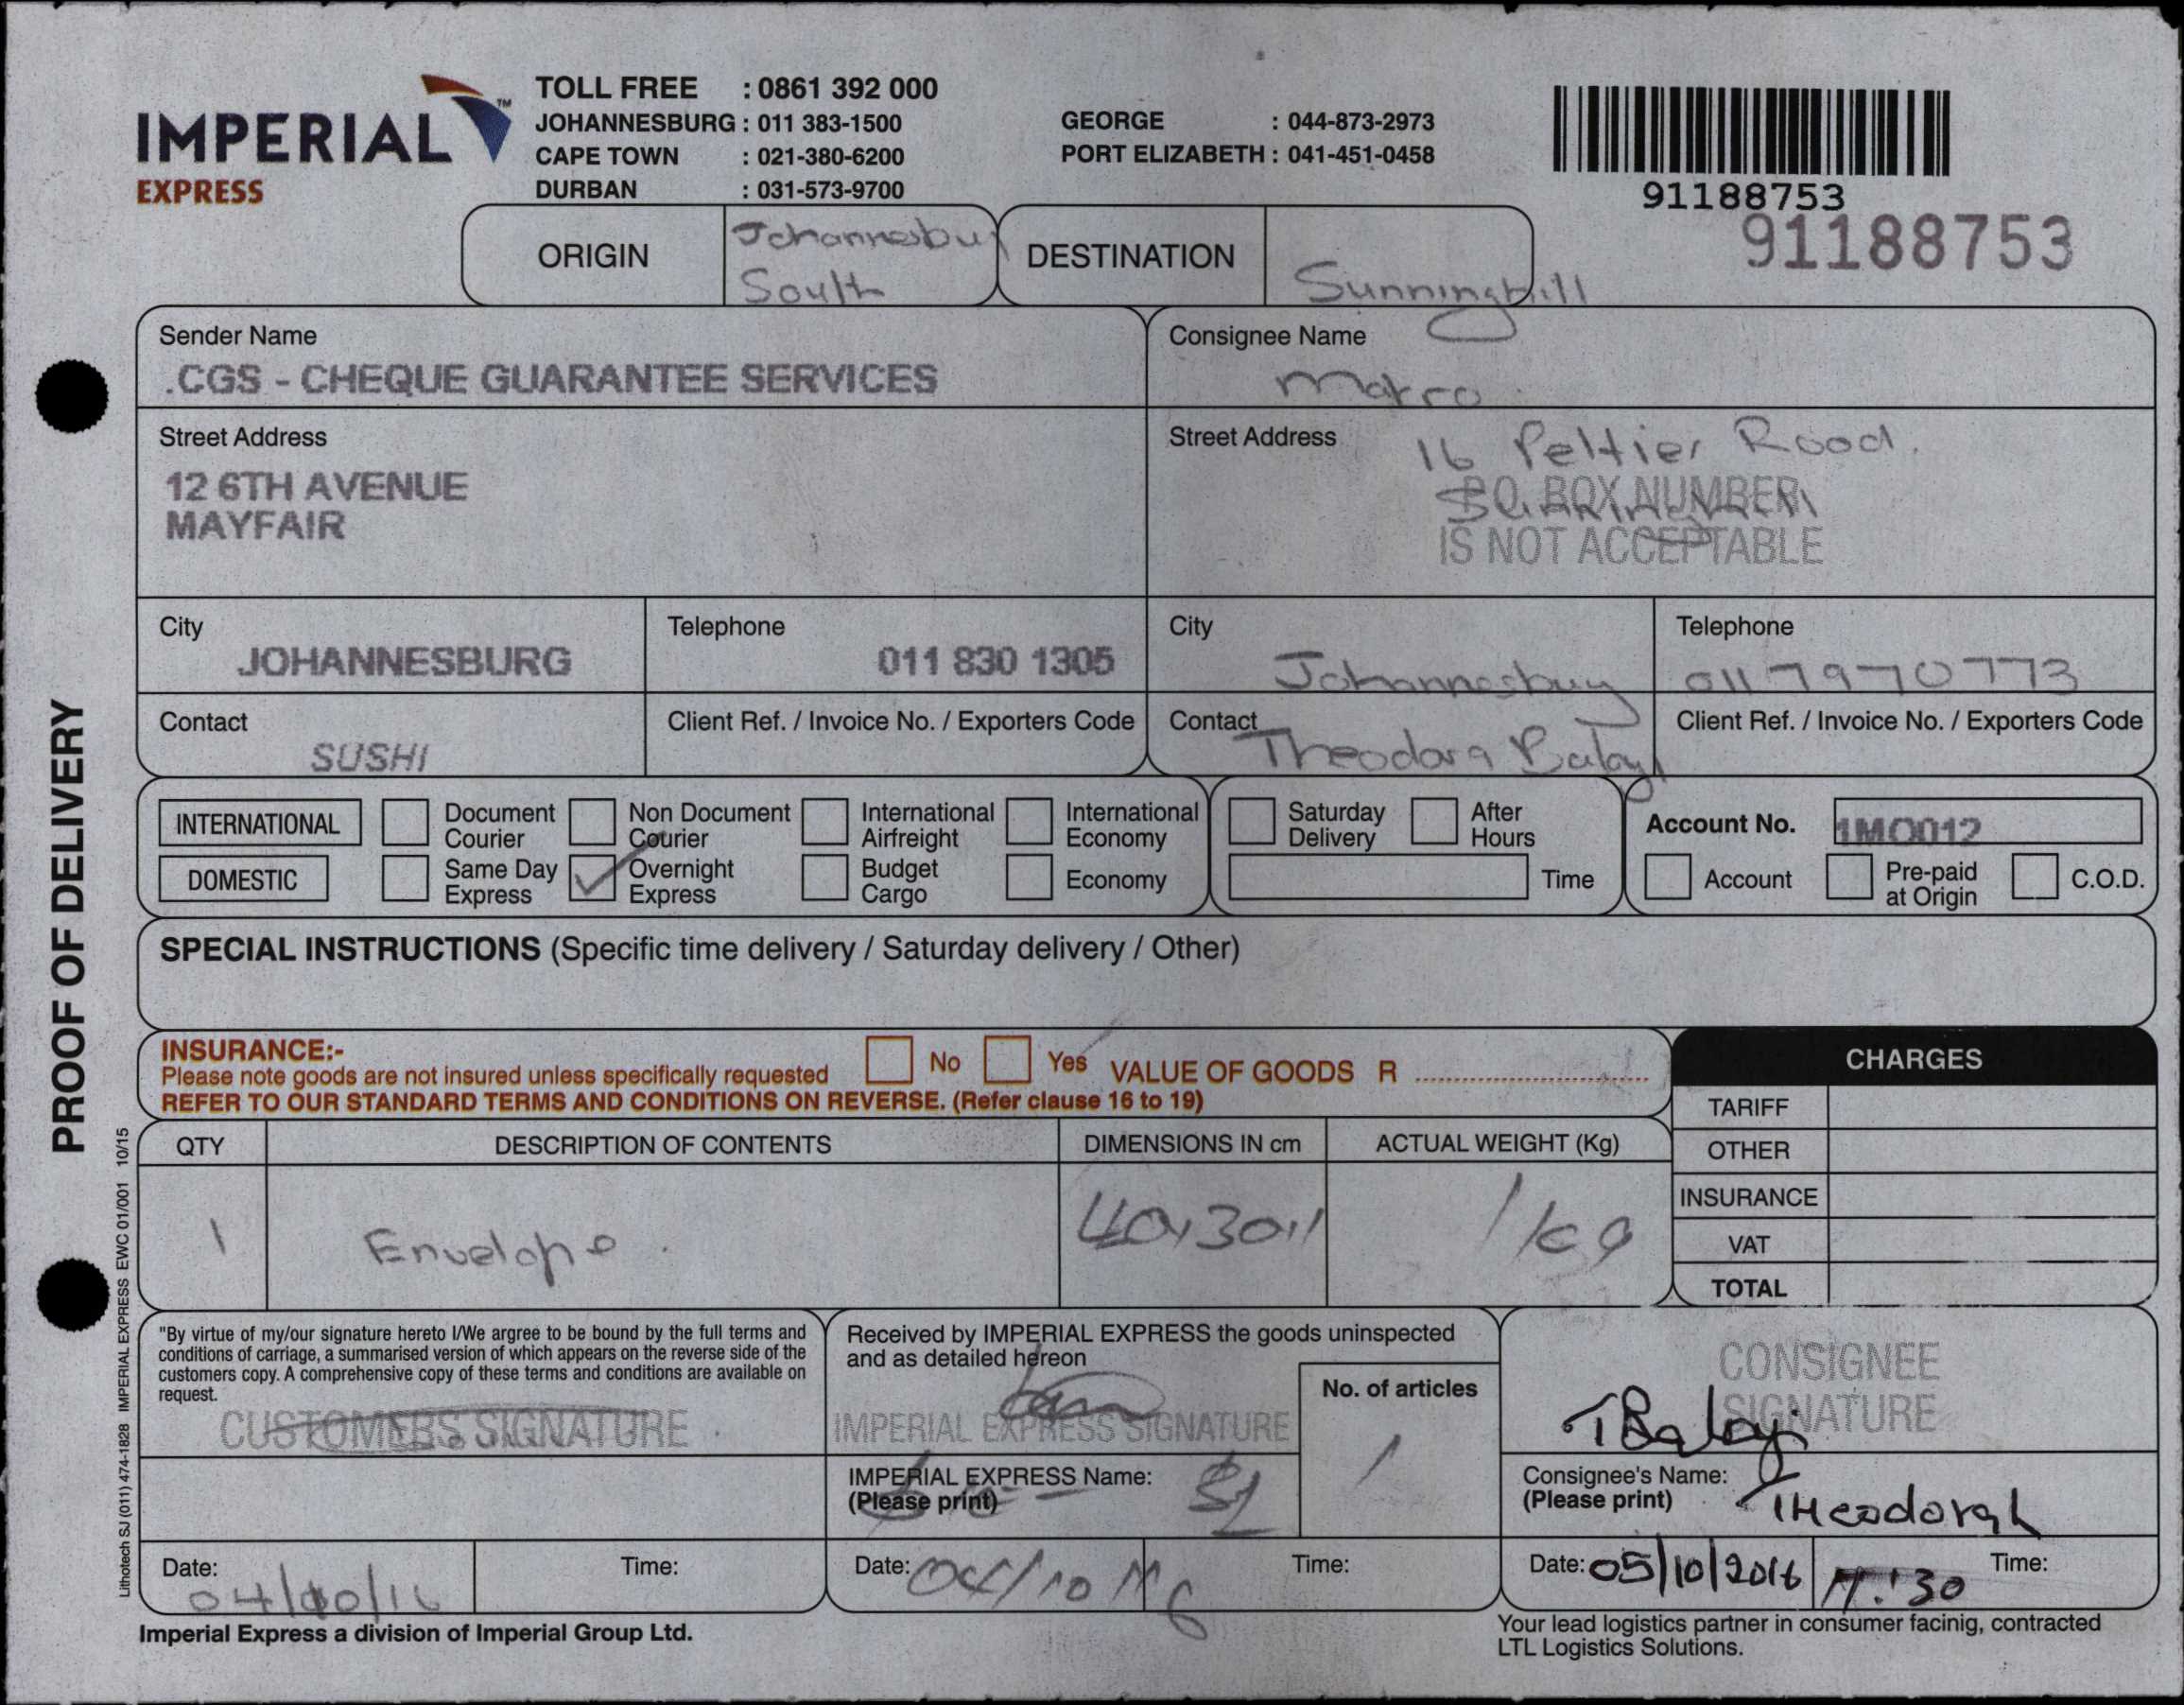 IMPERIAL™
EXPRESS
TOLL FREE : 0861 392 000
JOHANNESBURG : 011 383-1500
CAPE TOWN : 021-380-6200
DURBAN : 031-573-9700
GEORGE : 044-873-2973
PORT ELIZABETH : 041-451-0458
91188753
91188753
ORIGIN
Johannesbu
South
DESTINATION
Sunninghill
Sender Name
.CGS - CHEQUE GUARANTEE SERVICES
Consignee Name
Makro
Street Address
12 6TH AVENUE
MAYFAIR
Street Address
16 Peltier Road.
P.O. BOX NUMBER
IS NOT ACCEPTABLE
City
JOHANNESBURG
Telephone
011 830 1305
City
Johannesburg
Telephone
011 7970773
Contact
SUSHI
Client Ref. / Invoice No. / Exporters Code
Contact
Theodora Baloyi
Client Ref. / Invoice No. / Exporters Code
INTERNATIONAL
Document Courier
Non Document Courier
International Airfreight
International Economy
DOMESTIC
Same Day Express
Overnight Express
Budget Cargo
Economy
Saturday Delivery
After Hours
Time
Account No.
1MO012
Account
Pre-paid at Origin
C.O.D.
SPECIAL INSTRUCTIONS (Specific time delivery / Saturday delivery / Other)
INSURANCE:-
Please note goods are not insured unless specifically requested
No
Yes
VALUE OF GOODS R
REFER TO OUR STANDARD TERMS AND CONDITIONS ON REVERSE. (Refer clause 16 to 19)
CHARGES
TARIFF
OTHER
INSURANCE
VAT
TOTAL
QTY
DESCRIPTION OF CONTENTS
DIMENSIONS IN cm
ACTUAL WEIGHT (Kg)
1
Envelope
40x30x1
1kg
"By virtue of my/our signature hereto I/We argree to be bound by the full terms and
conditions of carriage, a summarised version of which appears on the reverse side of the
customers copy. A comprehensive copy of these terms and conditions are available on
request.
CUSTOMERS SIGNATURE
Date:
04/10/16
Time:
Received by IMPERIAL EXPRESS the goods uninspected
and as detailed hereon
IMPERIAL EXPRESS SIGNATURE
No. of articles
1
IMPERIAL EXPRESS Name:
(Please print)
Date:
04/10/16
Time:
CONSIGNEE
SIGNATURE
TBaloyi
Consignee's Name:
(Please print)
THeodorah
Date: 05/10/2016
11:30
Time:
Imperial Express a division of Imperial Group Ltd.
Your lead logistics partner in consumer facinig, contracted
LTL Logistics Solutions.
PROOF OF DELIVERY
Lithotech SJ (011) 474-1828 IMPERIAL EXPRESS EWC 01/001 10/15